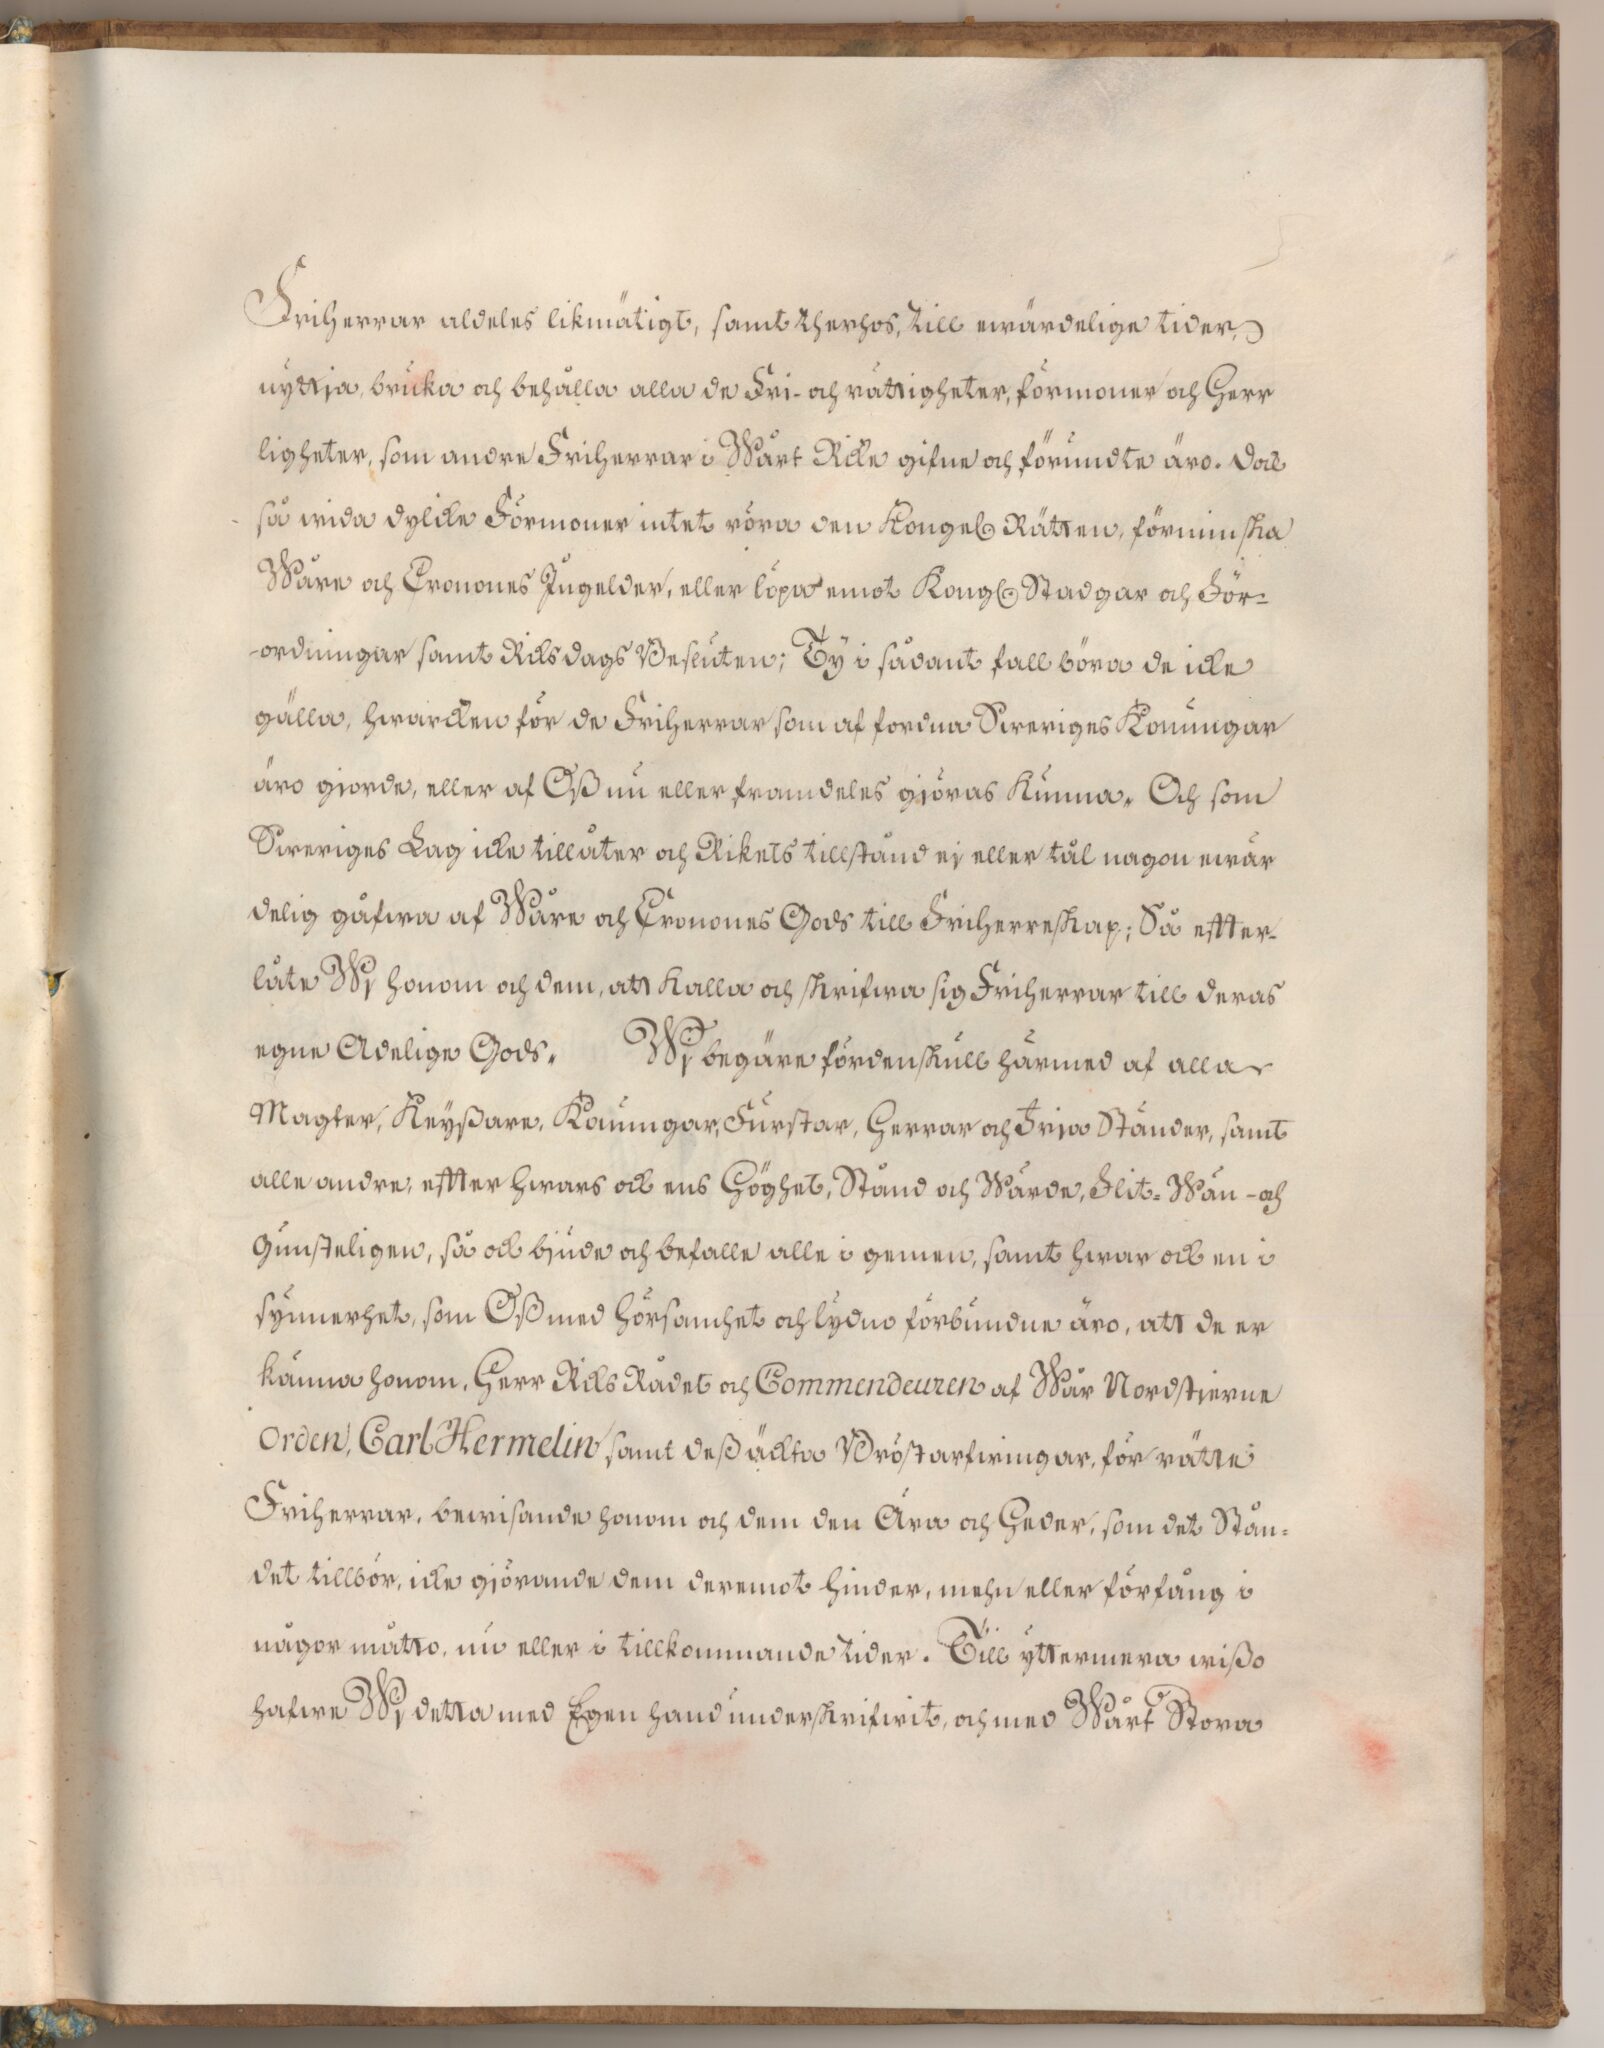 Friherrar aldeles likmätigt, samt therhos, till ewärdelige tider,
nyttja, bruka och behålla alla de Fri- och rättigheter, förmoner och Herr
ligheter, som andre Friherrar i Wårt Ricke gifne och förundte äro. Dock
så wida dylicke Förmoner intet röra den Kongel. Rätten, förminska
Wåre och Cronones Ingelder, eller löpa emot Kongl. Stadgar och För-
-ordningar samt Ricksdags Besluten; Ty i sådant fall böra de icke
gälla, hwarcken för de Friherrar som af fordna Sweriges Konungar
äro giorde, eller af Oß nu eller framdeles giöras kunna. Och som
Sweriges Lag icke tillåter och Rikets tillstånd ej eller tål nagon ewär
delig gåfwa af Wåre och Cronones Gods till Friherreskap; Så effter-
låte Wj honom och dem, att kalla och skrifwa sig Friherrar till deras
egne Adelige Gods. Wj begäre fördenskull härmed af alla
Magter, Keyßare, Konungar, Furstar, Herrar och Frija Ständer, samt
alle andre, effter hwars ock ens Höghet, Stånd och Wärde, Flit- Wän- och
Gunsteligen, så ock bjude och befalle alle i gemen, samt hwar ock en i
synnerhet, som Oß med hörsamhet och lydno förbundne äro, att de er
känna honom, Herr Ricks Rådet och Commendeuren af Wår Nordstjerne
Orden, Carl Hermelin samt deß äckta Bröstarfwingar, för rätte
Friherrar, bewisande honom och dem den Ära och Heder, som det Stån-
det tillbör, icke giörande dem deremot hinder, mehn eller förfång i
någor måtto, nu eller i tillkommande tider. Till yttermera wißo
hafwe Wj detta med Egen hand underskrifwit, och med Wårt Stora